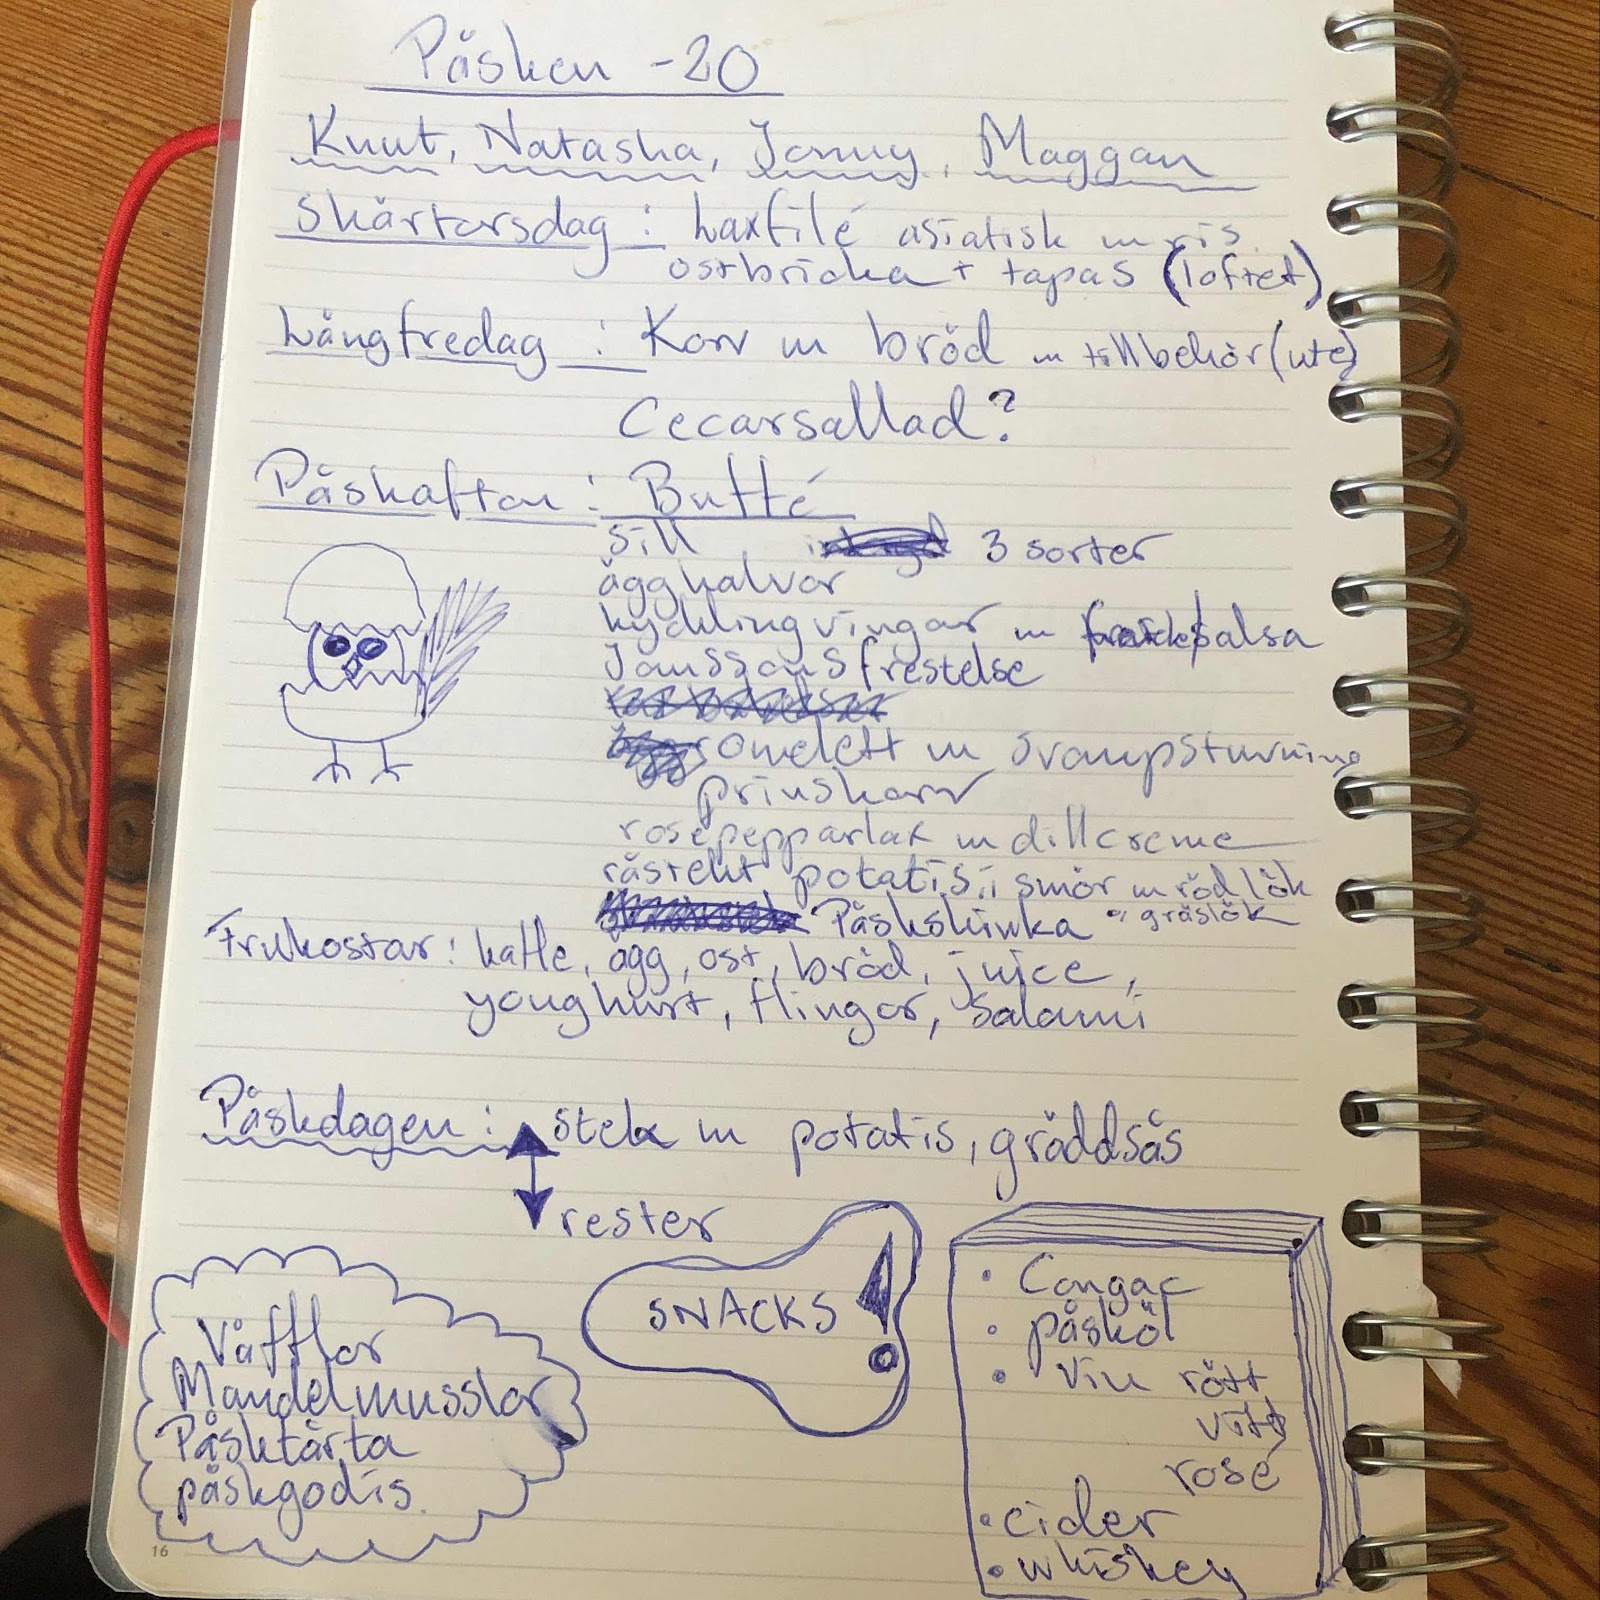 Påsken -20
Knut, Natasha, Jonny, Maggan
Skärtorsdag: Laxfilé asiatisk m ris.
ostbricka + tapas (loftet)
Långfredag: Korv m bröd m tillbehör (ute)
Cecarsallad?
Påskafton: Buffé
Sill 3 sorter
ägghalvor
kycklingvingar m salsa
Janssons frestelse
omelett m svampstuvning
prinskorv
rosépepparlax m dillcreme
råstekt potatis i smör m rödlök
Påskskinka o gräslök
Frukostar: kaffe, ägg, ost, bröd, juice,
youghurt, flingor, Salami
Påskdagen: stek m potatis, gräddsås
rester
SNACKS!
Våfflor
Mandelmusslor
Påsktårta
påskgodis.
• Congac
• påsköl
• Vin rött
vitt
rosé
• cider
• whiskey
16